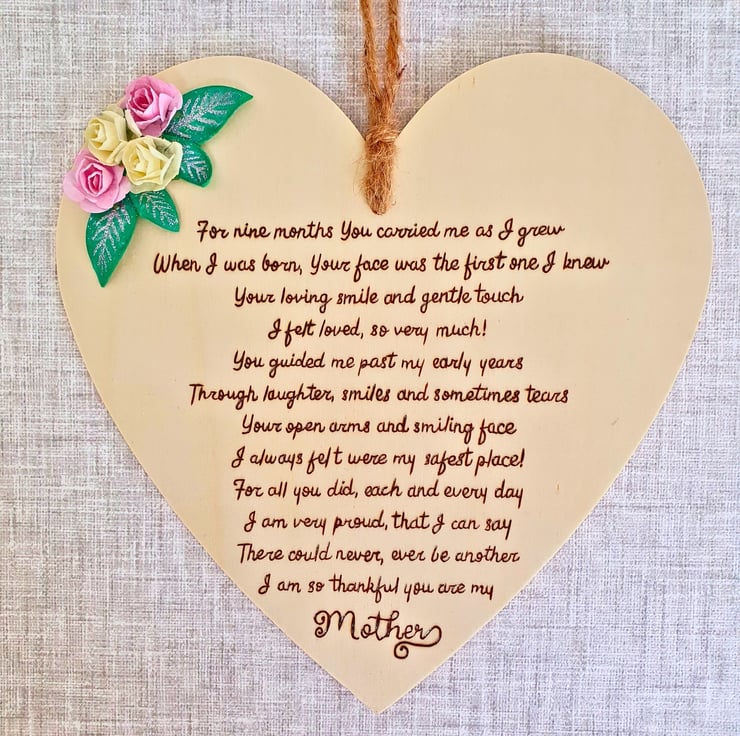 For nine months You carried me as I grew
When I was born, Your face was the first one I knew
Your loving smile and gentle touch
I felt loved, so very much!
You guided me past my early years
Through laughter, smiles and sometimes tears
Your open arms and smiling face
I always felt were my safest place!
For all you did, each and every day
I am very proud, that I can say
There could never, ever be another
I am so thankful you are my
Mother